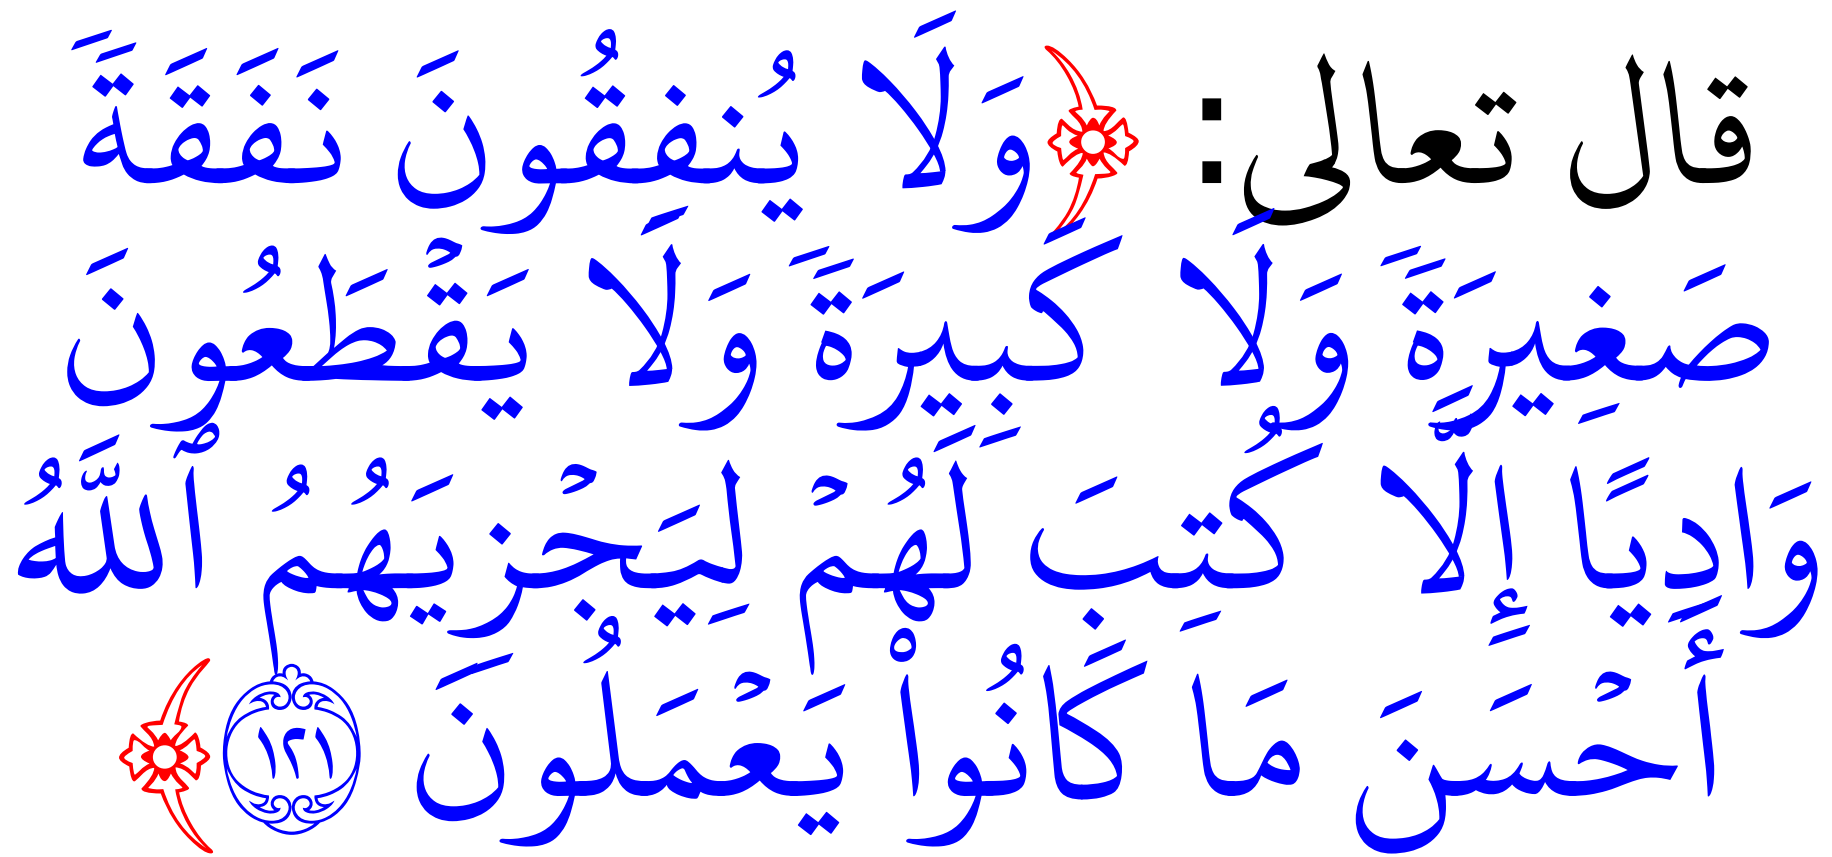 قال تعالى: ﴿وَلَا يُنفِقُونَ نَفَقَةً
صَغِيرَةً وَلَا كَبِيرَةً وَلَا يَقْطَعُونَ
وَادِيًا إِلَّا كُتِبَ لَهُمْ لِيَجْزِيَهُمُ ٱللَّهُ
أَحْسَنَ مَا كَانُوا۟ يَعْمَلُونَ ١٢١﴾